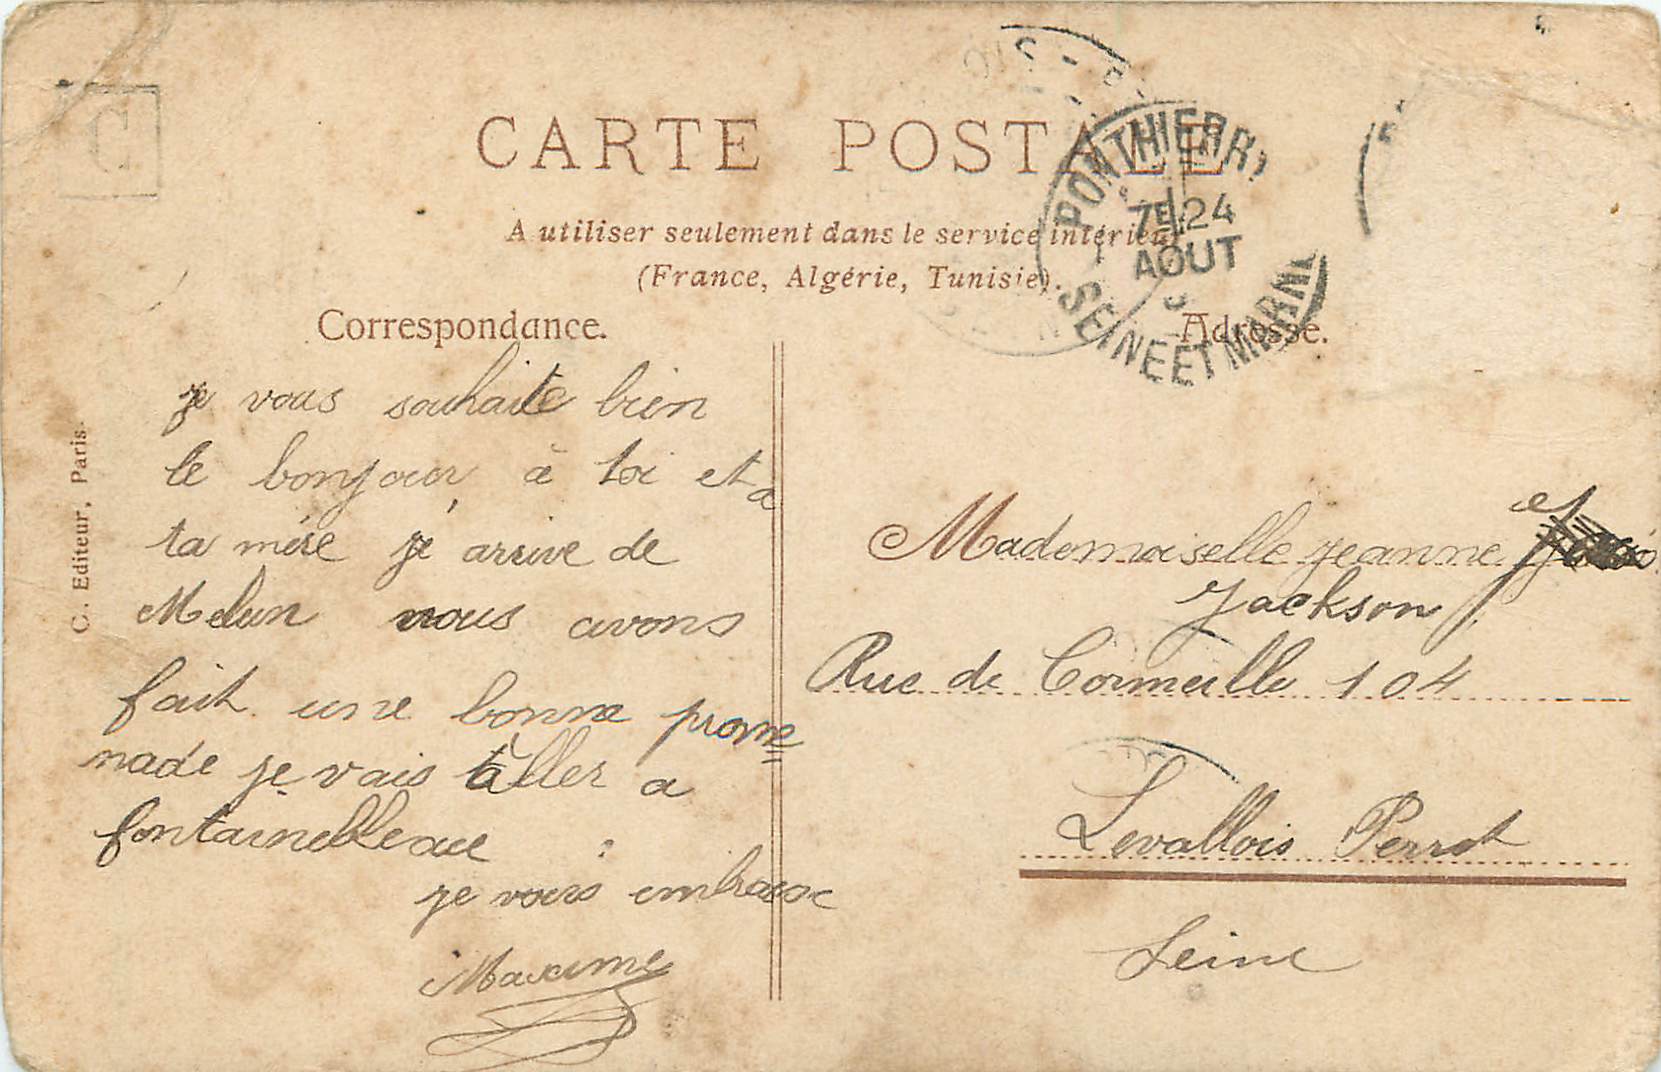 CARTE POSTALE
A utiliser seulement dans le service intérieur
(France, Algérie, Tunisie).
Correspondance.
Adresse.
C
C. Editeur, Paris.
PONTHIERRY
7E 24
AOUT
SEINE ET MARNE
je vous souhaite bien
le bonjour à toi et a
ta mère je arrive de
Melun nous avons
fait une bonne prome
nade je vais aller a
fontainebleau
je vous embrasse
Maxime
Mademoiselle jeanne
Jackson
Rue de Cormeille 104
Levallois Perret
Seine